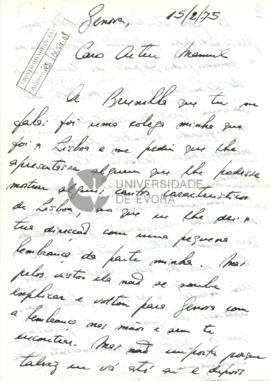 Genova, 15/2/75
Caro Artur Manuel
A Brunilha que tu me
falas foi uma colega minha que
foi a Lisboa e me pediu que lhe
apresentasse alguem que lhe podesse
mostrar alguns cantos característicos
de Lisboa, ao que eu lhe dei a
tua direcção com uma pequena
lembrança da parte minha. Mas
pelos vistos ela não se soube
explicar e voltou para Genova com
a lembrança nas mãos e sem te
encontrar. Mas não importa porque
talvez eu vá até aí e depois
UNIVERSIDADE
DE ÉVORA